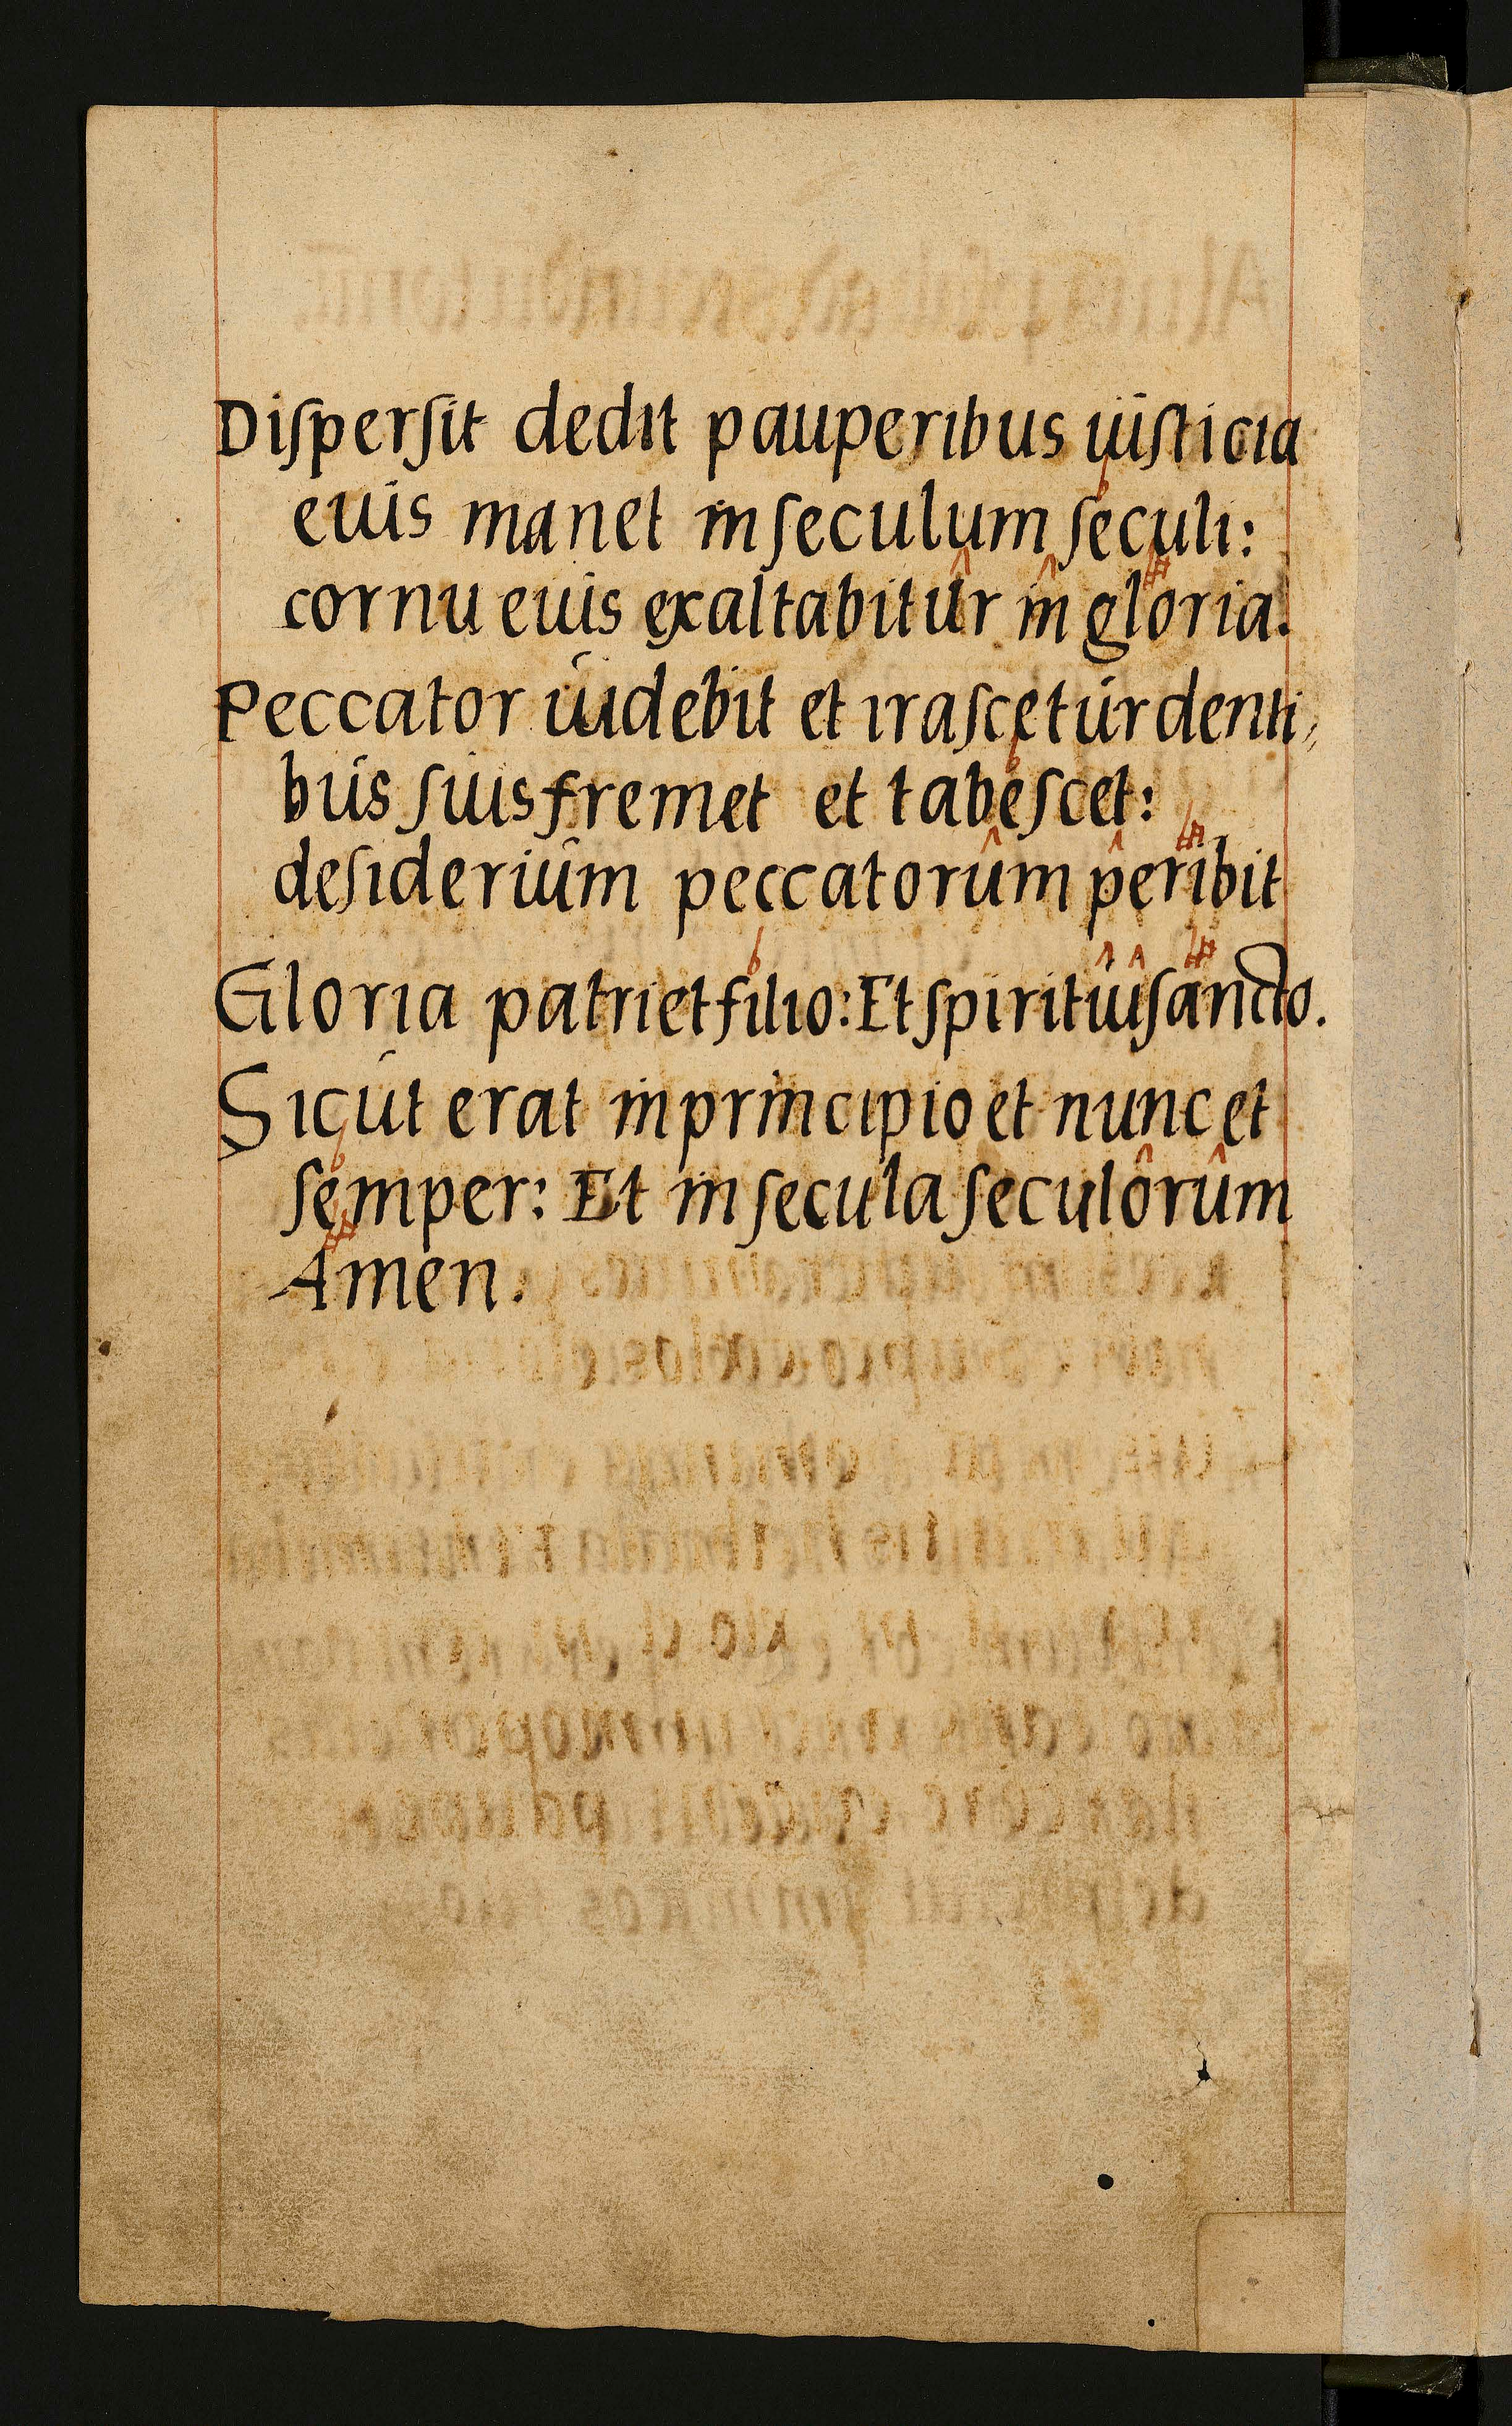 Diſperſit dedit pauperibus iuſticia
euis manet in ſeculum ſeculi:
cornu euis exaltabitur in gloria.
Peccator uidebit et iraſcetur denti,,
bus ſuis fremet et tabeſcet:
deſiderium peccatorum peribit
Gloria patri et filio: Et ſpiritui ſancto.
Sicut erat in principio et nunc et
ſemper: Et in ſecula ſeculorum
Amen.